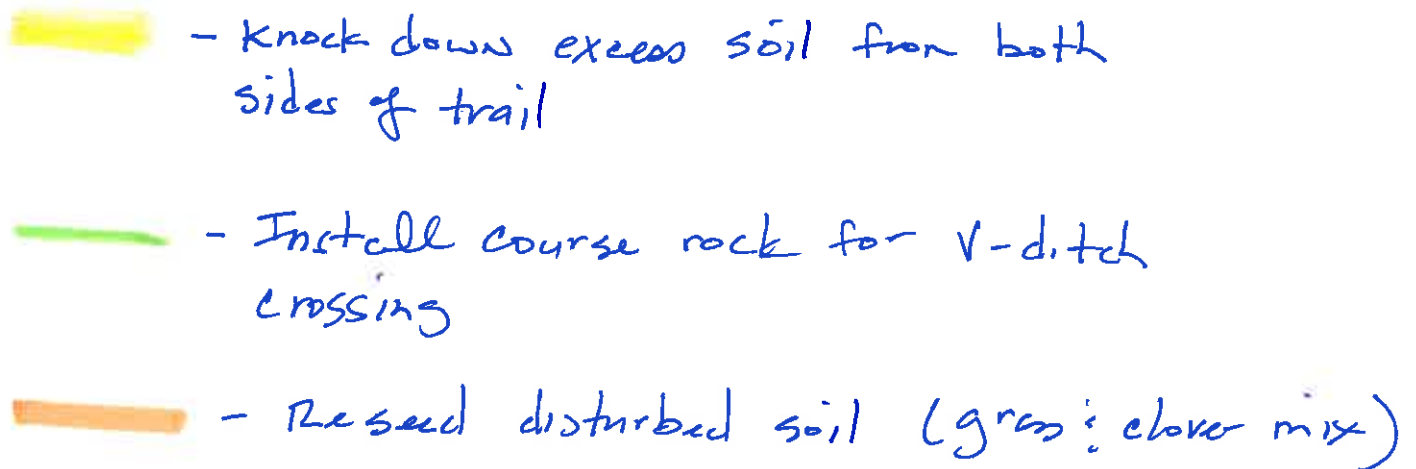 - Knock down excess soil from both
sides of trail
- Install course rock for V-ditch
crossing
- Reseed disturbed soil (grass & clover mix)